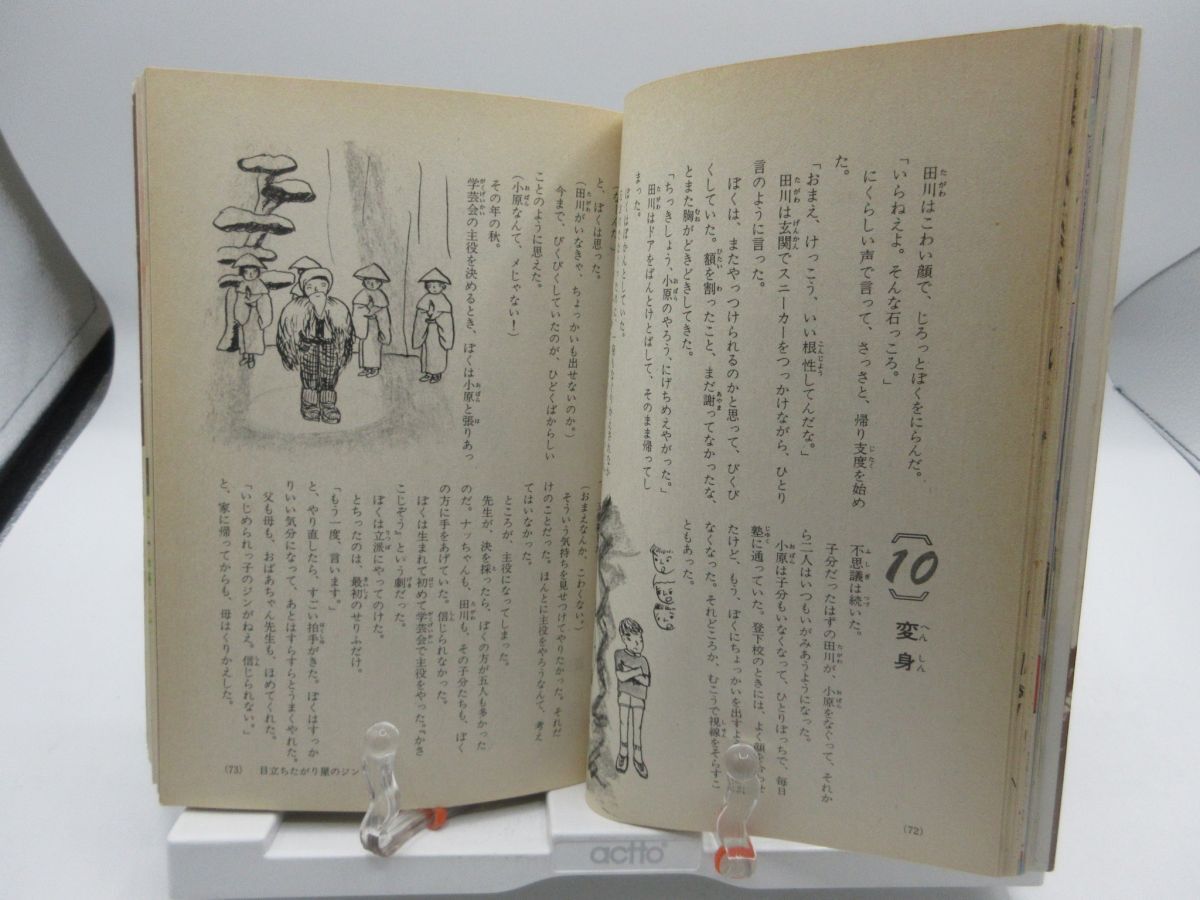 田川はこわい顔で、じろっとぼくをにらんだ。
「いらねえよ。そんな石っころ。」
にくらしい声で言って、さっさと、帰り支度を始め
た。
「おまえ、けっこう、いい根性してんだな。」
田川は玄関でスニーカーをつっかけながら、ひとり
言のように言った。
ぼくは、またやっつけられるのかと思って、びくび
くしていた。額を割ったこと、まだ謝ってなかったな、
とまた胸がどきどきしてきた。
「ちっきしょう、小原のやろう、にげちめえやがった。」
田川はドアをばんとけとばして、そのまま帰ってし
まった。
ぼくはぽかんとしていた。
〔10〕 変身
不思議は続いた。
子分だったはずの田川が、小原をなぐって、それか
ら二人はいつもいがみあうようになった。
小原は子分もいなくなって、ひとりぼっちで、毎日
塾に通っていた。登下校のときには、よく顔を合った
たけど、もう、ぼくにちょっかいを出すよ
なくなった。それどころか、むこうで視線をそらすこ
ともあった。
(72)
と、ぼくは思った。
(田川がいなきゃ、ちょっかいも出せないのか。)
今まで、びくびくしていたのが、ひどくばからしい
ことのように思えた。
(小原なんて、メじゃない！)
その年の秋。
学芸会の主役を決めるとき、ぼくは小原と張りあっ
(おまえなんか、こわくない。)
そういう気持ちを見せつけてやりたかった。それだ
けのことだった。ほんとに主役をやろうなんて、考え
てはいなかった。
ところが、主役になってしまった。
先生が、決を採ったら、ぼくの方が五人も多かった
のだ。ナッちゃんも、田川も、その子分たちも、ぼく
の方に手をあげていた。信じられなかった。
ぼくは生まれて初めて学芸会で主役をやった。『かさ
こじぞう』という劇だった。
ぼくは立派にやってのけた。
とちったのは、最初のせりふだけ。
「もう一度、言います。」
と、やり直したら、すごい拍手がきた。ぼくはすっか
りいい気分になって、あとはすらすらとうまくやれた。
父も母も、おばあちゃん先生も、ほめてくれた。
「いじめられっ子のジンがねえ。信じられない。」
と、家に帰ってからも、母はくりかえした。
(73) 目立ちたがり屋のジン
actto